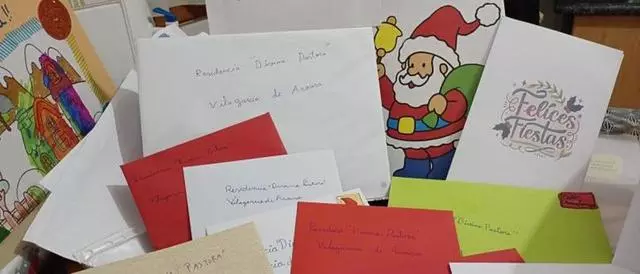 Residencia "Divina Pastora"
Vilagarcía de Arousa
Felices
Fiestas
Residencia "Divina Pastora"
Vilagarcía de Arousa
Residencia "Divina Pastora"
Vilagarcía de Arousa
"Divina Pastora"
PASTORA"